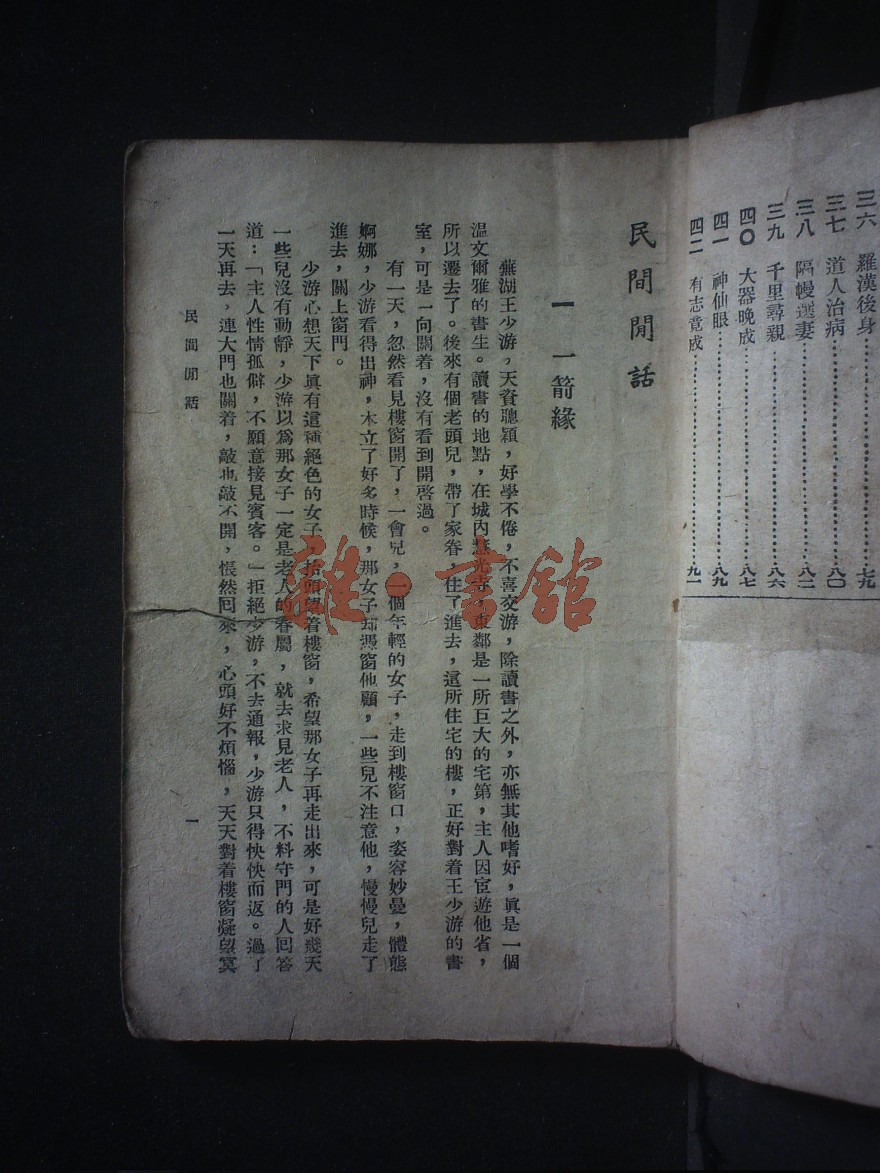 三六　羅漢後身…………七九
三七　道人治病…………八〇
三八　隔幔選妻…………八二
三九　千里尋親…………八六
四〇　大器晚成…………八七
四一　神仙眼…………八九
四二　有志竟成…………九一
民間閒話
一　一箭緣
蕪湖王少游，天資聰穎，好學不倦，不喜交游，除讀書之外，亦無其他嗜好，眞是一個
溫文爾雅的書生。讀書的地點，在城內慧光寺，東鄰是一所巨大的宅第，主人因宦遊他省，
所以遷去了。後來有個老頭兒，帶了家眷，住了進去，這所住宅的樓，正好對着王少游的書
室，可是一向關着，沒有看到開啓過。
有一天，忽然看見樓窗開了，一會兒，一個年輕的女子，走到樓窗口，姿容妙曼，體態
婀娜，少游看得出神，木立了好多時候，那女子却憑窗他顧，一些兒不注意他，慢慢兒走了
進去，關上窗門。
少游心想天下眞有這種絕色的女子，抬頭望着樓窗，希望那女子再走出來，可是好幾天
一些兒沒有動靜，少游以爲那女子一定是老人的眷屬，就去求見老人，不料守門的人回答
道：「主人性情孤僻，不願意接見賓客。」拒絕少游，不去通報，少游只得怏怏而返。過了
一天再去，連大門也關着，敲也敲不開，悵然回來，心頭好不煩惱，天天對着樓窗凝望冥
民間閒話
一
雜·書館